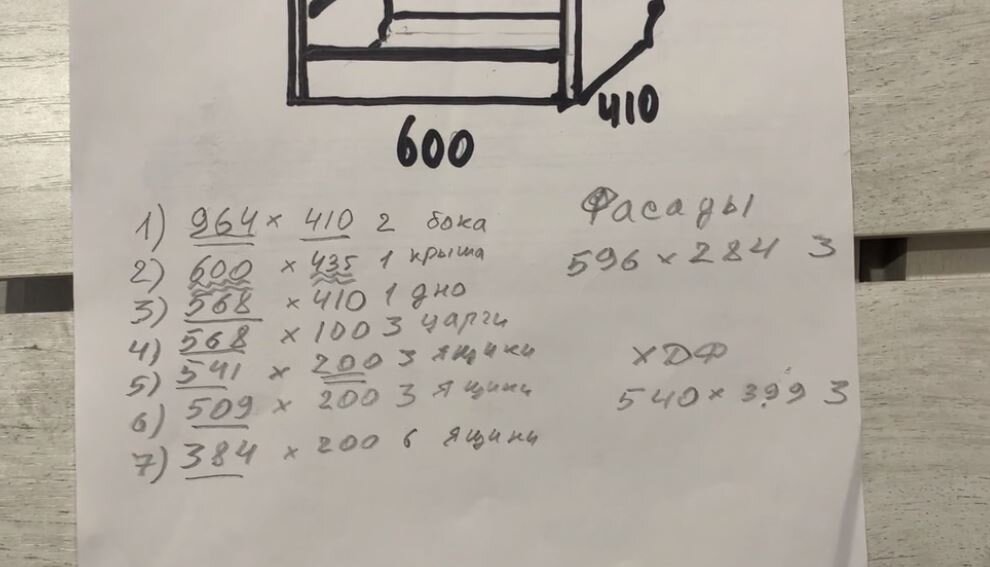 410
600
1) 964 × 410 2 бока
2) 600 × 435 1 крыша
3) 568 × 410 1 дно
4) 568 × 100 3 царги
5) 541 × 200 3 ящики
6) 509 × 200 3 ящики
7) 384 × 200 6 ящики
Фасады
596 × 284 3
ХДФ
540 × 399 3